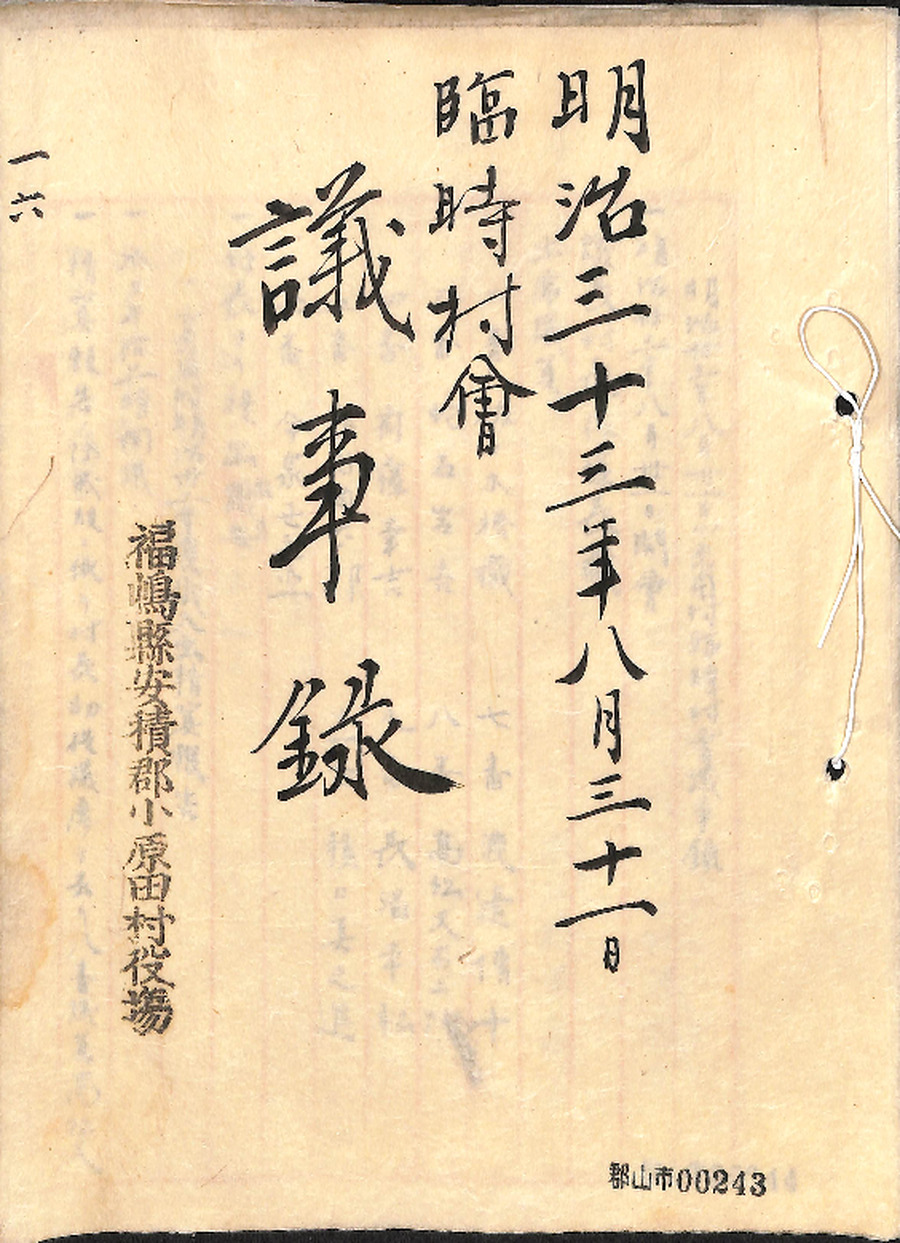 明治三十三年八月三十一日
臨時村會
議事録
福嶋縣安積郡小原田村役塲
一六
郡山市00243